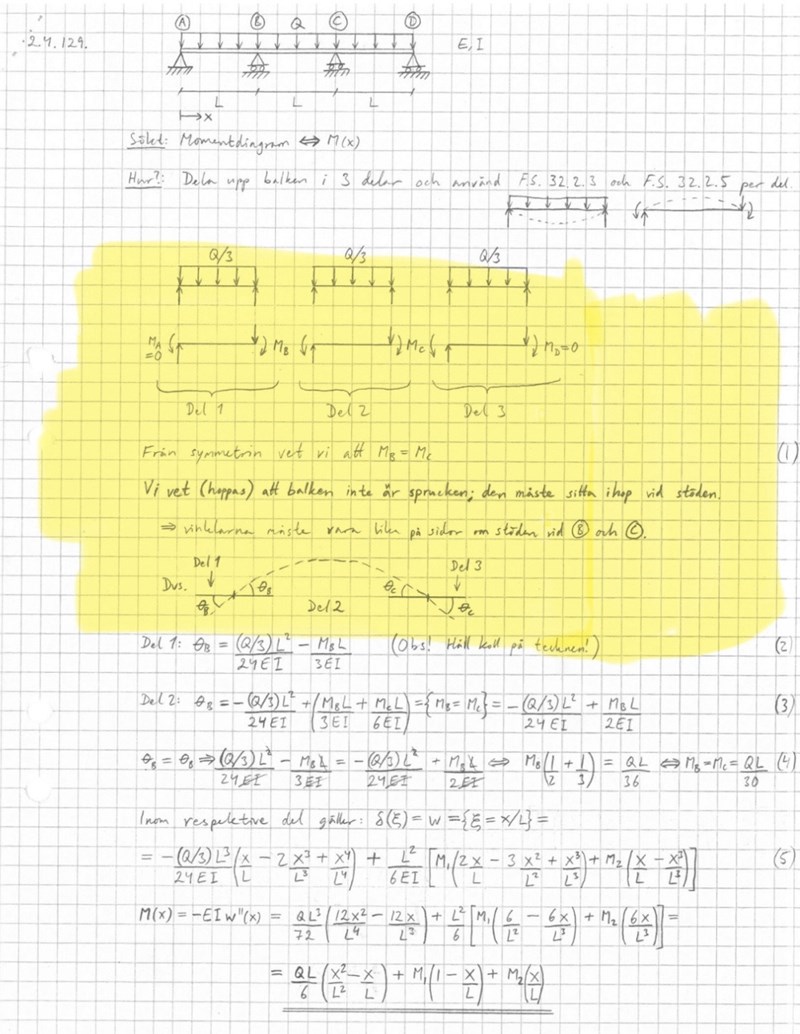 Ⓐ Ⓑ Q Ⓒ Ⓓ
2.4.129. E, I
L L L
x
Sökt: Momentdiagram ⇔ M(x)
Hur?: Dela upp balken i 3 delar och använd F.S. 32.2.3 och F.S. 32.2.5 per del.
Q/3 Q/3 Q/3
M_A =0 M_B M_C M_D=0
Del 1 Del 2 Del 3
Från symmetrin vet vi att M_B = M_C (1)
Vi vet (hoppas) att balken inte är sprucken; den måste sitta ihop vid stöden.
⇒ vinklarna måste vara lika på sidor om stöden vid Ⓑ och Ⓒ.
Del 1 Del 3
Dvs. θ_B θ_B Del 2 θ_C θ_C
Del 1: θ_B = (Q/3)L²/24EI − M_B L/3EI (Obs! Håll koll på tecknen!) (2)
Del 2: θ_B = −(Q/3)L²/24EI + (M_B L/3EI + M_C L/6EI) = {M_B = M_C} = −(Q/3)L²/24EI + M_B L/2EI (3)
θ_B = θ_B ⇒ (Q/3)L²/24EI − M_B L/3EI = −(Q/3)L²/24EI + M_B L/2EI ⇔ M_B(1/2 + 1/3) = QL/36 ⇔ M_B = M_C = QL/30 (4)
Inom respektive del gäller: δ(ξ) = w = {ξ = x/L} =
= −(Q/3)L³/24EI (x/L − 2x³/L³ + x⁴/L⁴) + L²/6EI [M₁(2x/L − 3x²/L² + x³/L³) + M₂(x/L − x³/L³)] (5)
M(x) = −EI w''(x) = QL³/72 (12x²/L⁴ − 12x/L³) + L²/6 [M₁(6/L² − 6x/L³) + M₂(6x/L³)] =
= QL/6 (x²/L² − x/L) + M₁(1 − x/L) + M₂(x/L)